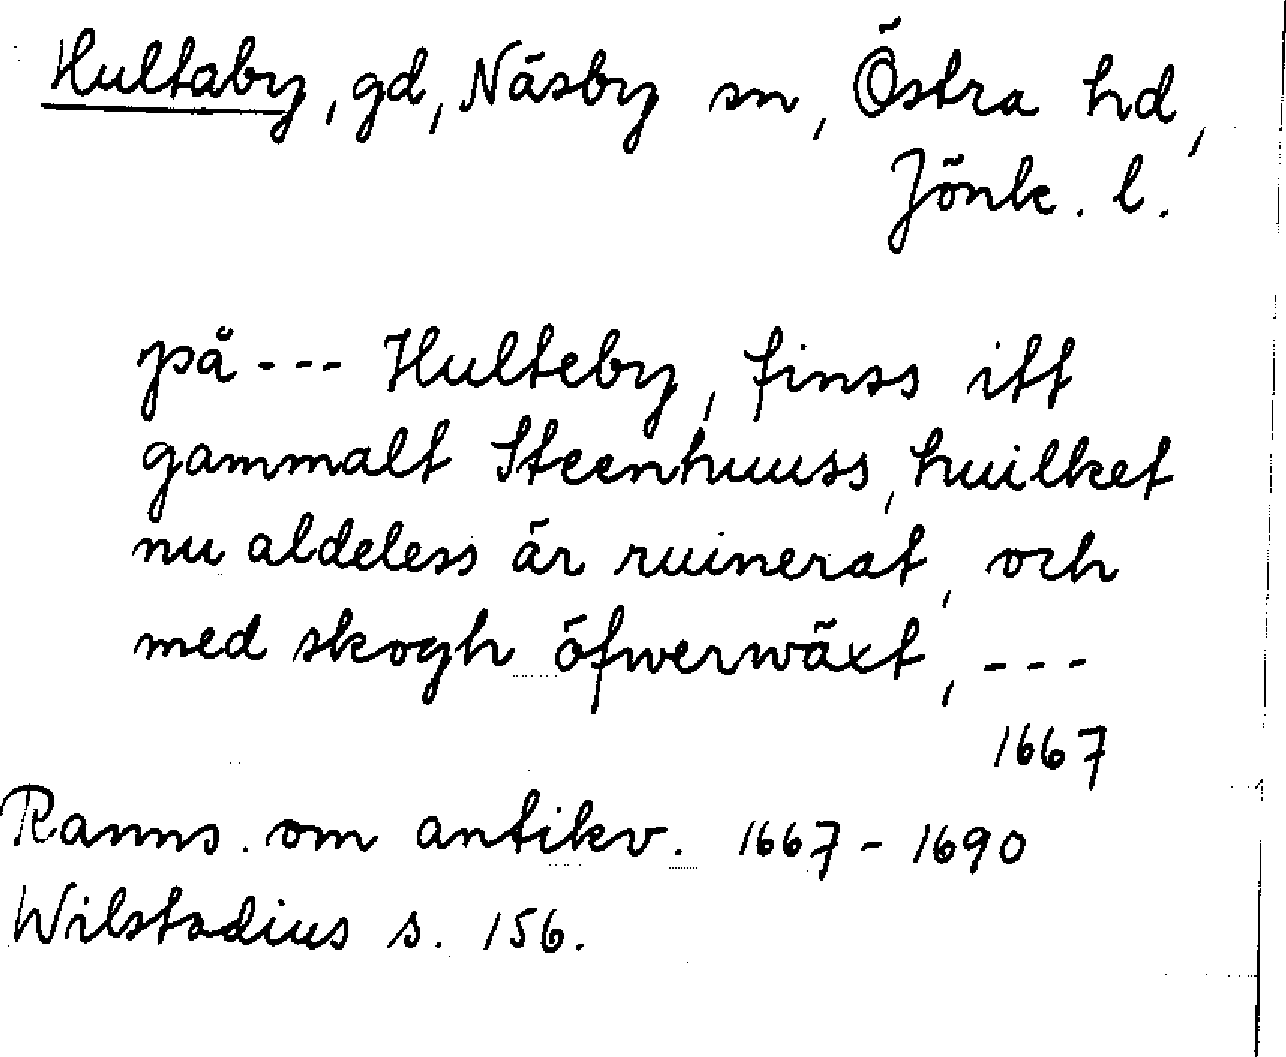 Hultaby, gd, Näsby sn, Östra hd,
Jönk. l.
på --- Hulteby, finss itt
gammalt Steenhuuss, huilket
nu aldeless är ruinerat, och
med skogh öfwerwäxt, ---
1667
Ranns. om antikv. 1667 - 1690
Wilstadius s. 156.